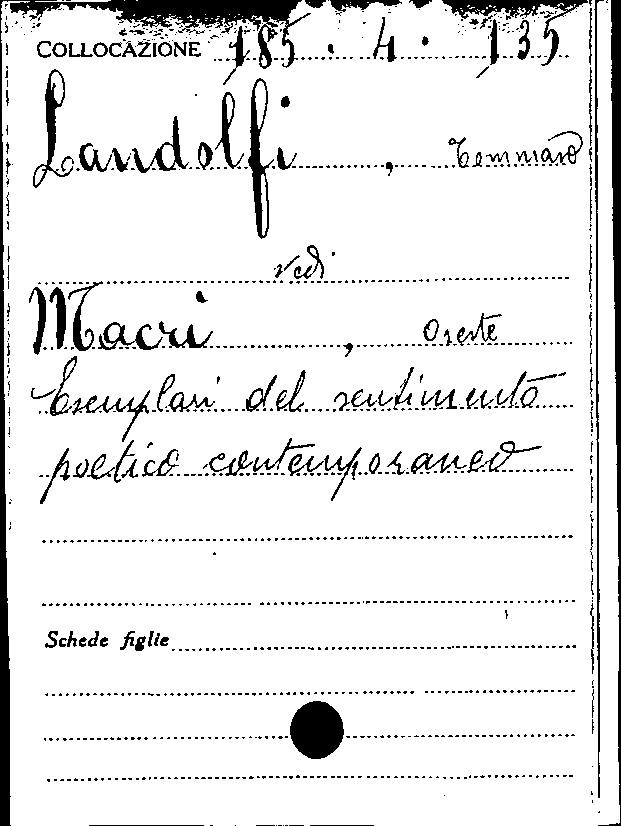 COLLOCAZIONE 185.4.135
Landolfi, Tommaso
vedi
Macrí, Oreste
Esemplari del sentimento
poetico contemporaneo
Schede figlie